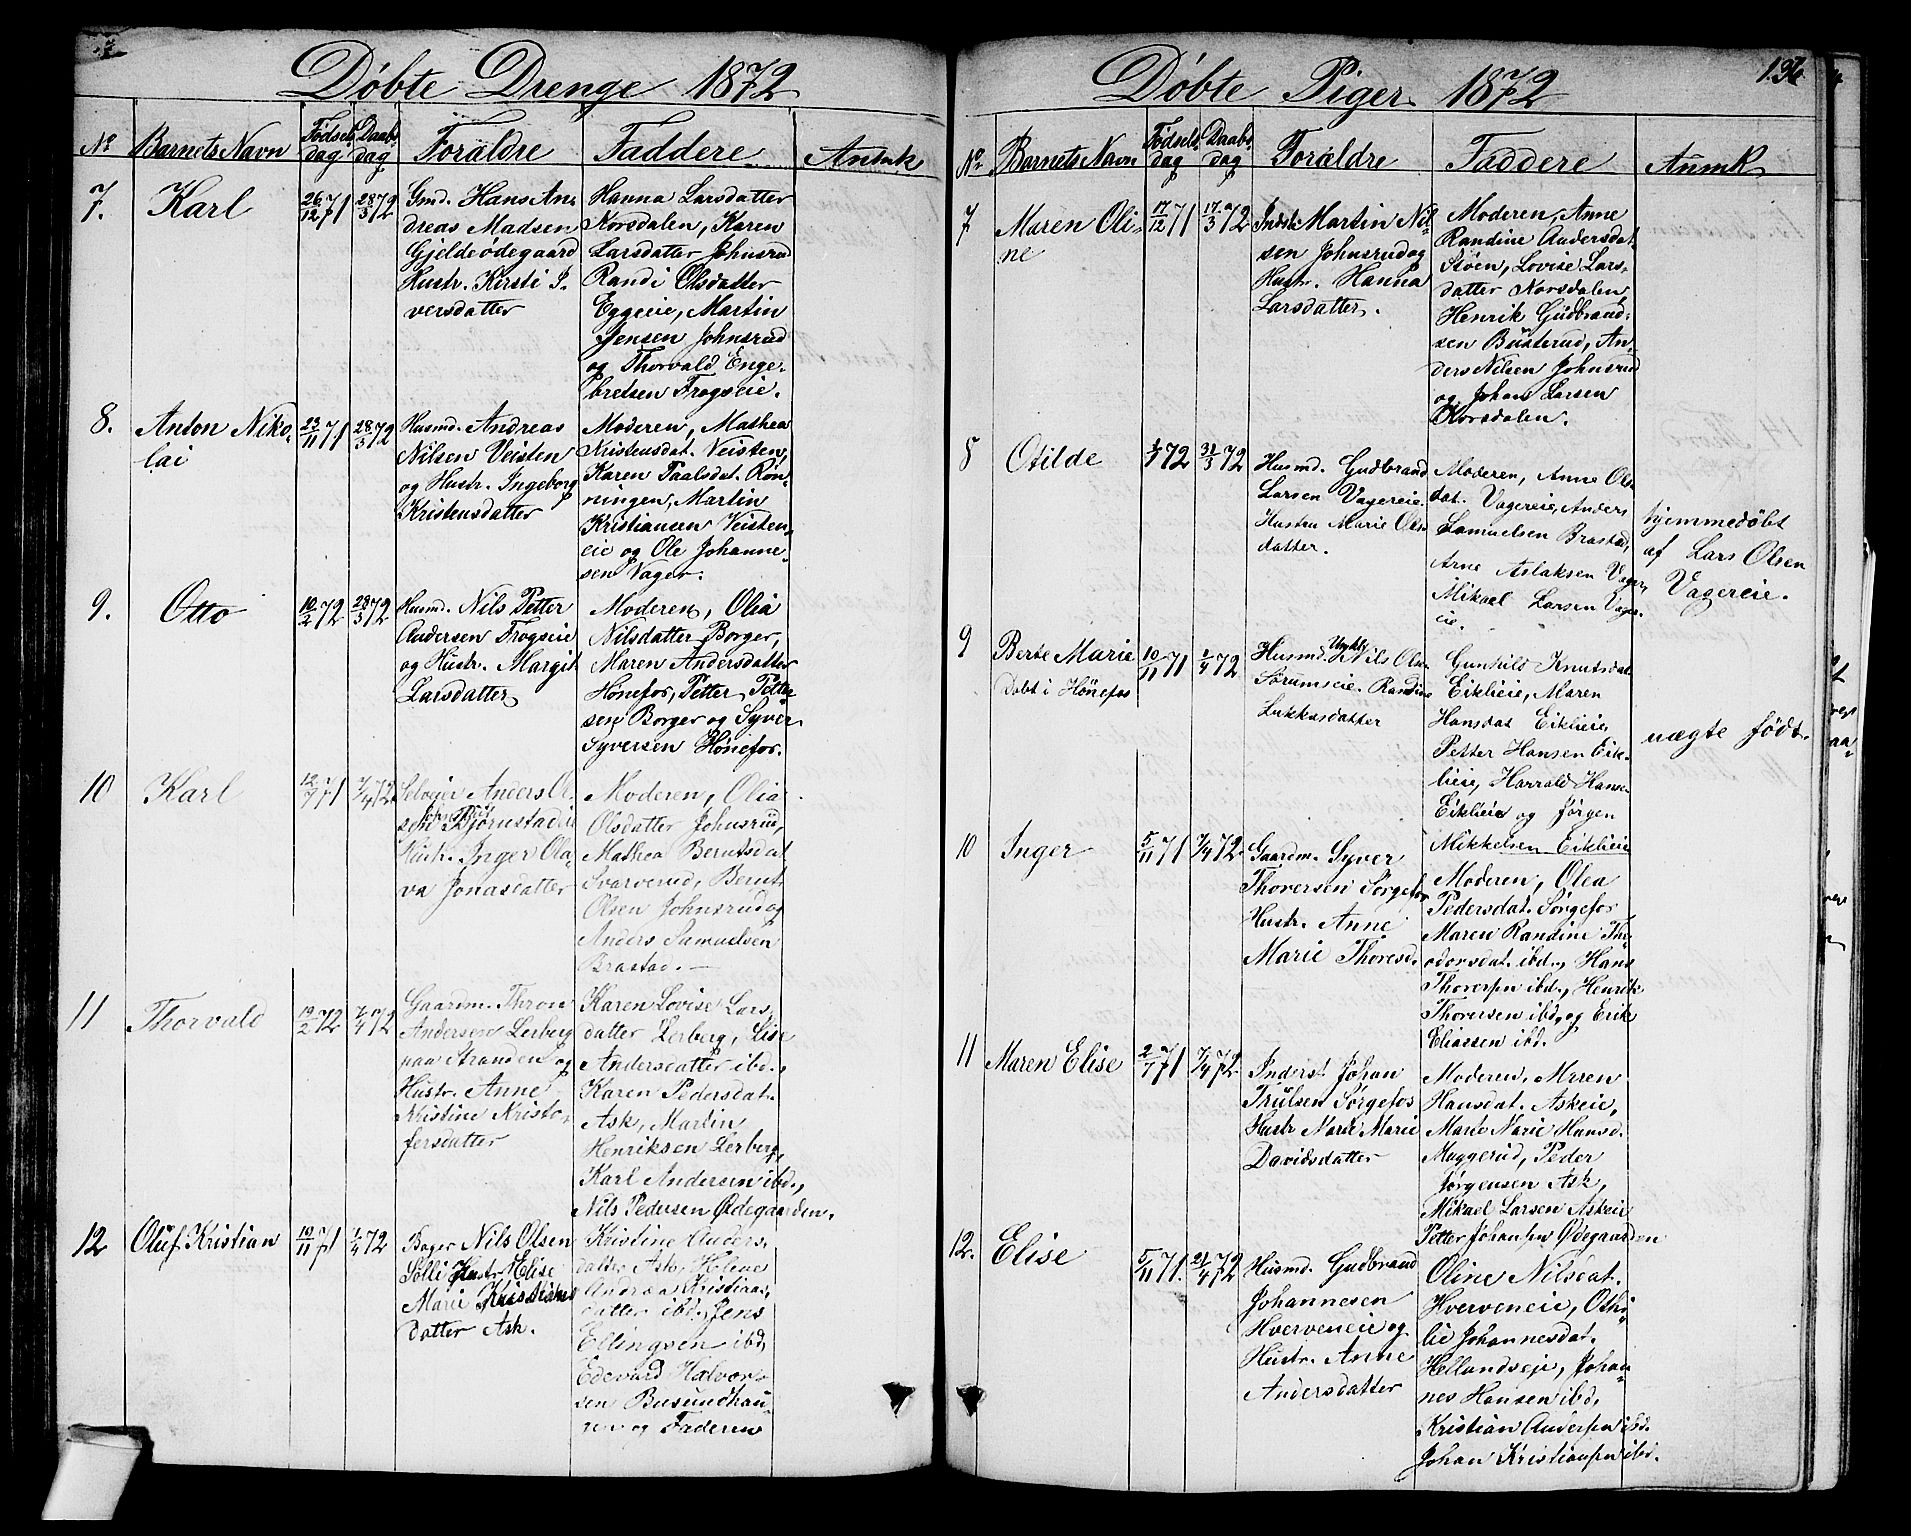 Döbte Drenge 1872
No
Barnets Navn
Födsels
dag
Daabs
dag
Forældre
Faddere
Anmk
7.
Karl
26/12 71
28/3 72
Gmd. Hans An
dreas Madsen
Gjeldeödegaard
Hustr. Kirsti I
versdatter
Hanna Larsdatter
Norsdalen, Karen
Larsdatter Johnsrud
Randi Olsdatter
Eggeeie, Martin
Jensen Johnsrud
og Thorvald Enge-
bretsen Frogseie.
8.
Anton Niko-
lai
23/11 71
28/3 72
Husmd. Andreas
Nilsen Veisten
og Hustr. Ingeborg
Kristensdatter
Moderen, Mathea
Kristensdat. Veisten,
Karen Paalsdat. Rön-
ningen, Martin
Kristiansen Veisten-
eie og Ole Johanne-
sen Vager.
9.
Otto
10/2 72
28/3 72
Husmd. Nils Petter
Andersen Frogseie
og Hustr. Margit
Larsdatter
Moderen, Olia
Nilsdatter Borger,
Maren Andersdatter
Hönefos, Petter Petter
sen Borger og Syver
Syversen Hönefos.
10
Karl
12/7 71
7/4 72
Selveier Anders Ol
sen Björnstadeie
Hustr. Inger Ola-
va Jonasdatter
Moderen, Olia
Olsdatter Johnsrud,
Mathea Berntsdat
Svarverud, Bernt
Olsen Johnsrud og
Anders Samuelsen
Brastad. —
11
Thorvald
19/2 72
7/4 72
Gaardm. Thron
Andersen Lerberg
paa Stranden og
Hustr. Anne
Kristine Kristo-
fersdatter
Karen Lovise Lars
datter Lerberg, Lise
Andersdatter ibd.,
Karen Pedersdat.
Ask, Martin
Henriksen Lerberg,
Karl Andersen ibd.,
Nils Pedersen Ödegaarden.
12
Oluf Kristian
10/11 71
1/4 72
Bager Nils Olsen
Solli Hustr. Elise
Marie Kristians
datter Ask.
Kristine Anders
datter Ask, Helene
Andrea Kristians
datter ibd., Jens
Ellingsen ibd,
Edevard Halvor-
sen Busundhau-
gen og Faderen
Döbte Piger 1872
No
Barnets Navn
Födsels
dag
Daabs
dag
Forældre
Faddere
Anmk
7
Maren Oli-
ne
17/12 71
17/3 72
Indst. Martin Nil
sen Johnsrud og
Hustr. Hanna
Larsdatter.
Moderen, Anne
Randine Andersdat.
Stöen, Lovise Lars-
datter Norsdalen,
Henrik Gudbrand-
sen Busterud, An-
ders Nilsen Johnsrud
og Johan Larsen
Norsdalen.
8
Otilde
1/1 72
31/3 72
Husmd. Gudbrand
Larsen Vagereie
Hustru Marie Ols-
datter.
Moderen, Anne Ols
dat. Vagereie, Anders
Samuelsen Brastad,
Arne Aslaksen Vager,
Mikael Larsen Vager-
eie.
hjemmedöbt
af Lars Olsen
Vagereie.
9
Berte Marie
Döbt i Hönefos
10/11 71
1/4 72
Husmd. Ungkl. Nils Olsen
Sörumseie. Randine
Lukkasdatter
Gunhild Knutsdat
Eiklieie, Maren
Hansdat Eiklieie,
Petter Hansen Eik-
lieie, Harrald Hans-
Eiklieie og Jörgen
Mikkelsen Eiklieie
uægte födt.
10
Inger
5/11 71
7/4 72
Gaardm. Syver
Thoresen Sörgefos
Hustr. Anne
Marie Thoresd.
Moderen, Olea
Pedersdat. Sörgefos
Maren Randine The-
odorsdat. ibd., Hans
Thoresen ibd., Henrik
Thoresen ibd. og Erik
Eliassen ibd.
11
Maren Elise
2/7 71
7/4 72
Inderst Johan
Trulsen Sörgefos
Hustr Marie
Davidsdatter
Moderen, Maren
Hansdat. Askeie,
Marte Marie Hansd.
Muggerud, Peder
Jörgensen Ask,
Mikael Larsen Askeie
Petter Johansen Ödegaarden
12.
Elise
5/11 71.
21/4 72
Husmd. Gudbrand
Johannesen
Hverveneie og
Hustr. Anne
Andersdatter
Oline Nilsdat.
Hverveneie, Othi-
lie Johannesdat.
Hellandseje, Johan
nes Hansen ibd,
Kristian Andersen ibd.
Johan Kristiansen ibd.